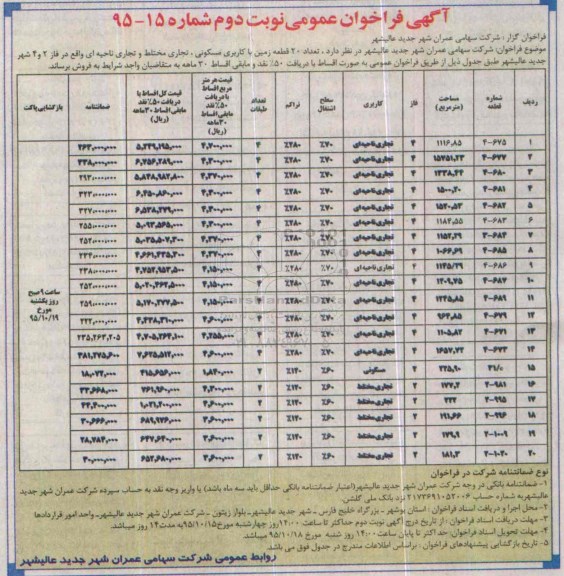 آگهی فراخوان عمومی نوبت دوم شماره ۱۵-۹۵
فراخوان گزار : شرکت سهامی عمران شهر جدید عالیشهر
موضوع فراخوان: شرکت سهامی عمران شهر جدید عالیشهر در نظر دارد . تعداد ۲۰ قطعه زمین با کاربری مسکونی ، تجاری مختلط و تجاری ناحیه ای واقع در فاز ۲ و ۴ شهر
جدید عالیشهر طبق جدول ذیل از طریق فراخوان عمومی به صورت اقساط با دریافت ۵۰٪ نقد و مابقی اقساط ۳۰ ماهه به متقاضیان واجد شرایط به فروش برساند.
ردیف شماره قطعه مساحت (مترمربع) فاز کاربری سطح اشغال تراکم تعداد طبقات قیمت هر متر مربع اقساط با دریافت ۵۰٪ نقد مابقی اقساط ۳۰ ماهه (ریال) قیمت کل اقساط با دریافت ۵۰٪ نقد مابقی اقساط ۳۰ ماهه (ریال) ضمانتنامه بازگشایی پاکت
۱ ۴-۶۷۵ ۱۱۱۶,۸۵ ۴ تجاری ناحیه‌ای ٪۷۰ ٪۲۸۰ ۴ ۴,۷۰۰,۰۰۰ ۵,۲۴۹,۱۹۵,۰۰۰ ۲۶۳,۰۰۰,۰۰۰
۲ ۴-۶۷۷ ۴ تجاری ناحیه‌ای ٪۷۰ ٪۲۸۰ ۴ ۴,۳۰۰,۰۰۰ ۶,۷۵۶,۲۸۹,۰۰۰ ۳۳۸,۰۰۰,۰۰۰
۳ ۴-۶۸۰ ۱۳۳۸,۴۴ ۴ تجاری ناحیه‌ای ٪۷۰ ٪۲۸۰ ۴ ۴,۳۷۰,۰۰۰ ۵,۸۴۸,۹۸۲,۸۰۰ ۲۹۳,۰۰۰,۰۰۰
۴ ۴-۶۸۱ ۱۵۰۰,۲۰ ۴ تجاری ناحیه‌ای ٪۷۰ ٪۲۸۰ ۴ ۴,۳۰۰,۰۰۰ ۶,۴۵۰,۸۶۰,۰۰۰ ۳۲۳,۰۰۰,۰۰۰
۵ ۴-۶۸۲ ۱۵۲۰,۵۳ ۴ تجاری ناحیه‌ای ٪۷۰ ٪۲۸۰ ۴ ۴,۳۰۰,۰۰۰ ۶,۵۳۸,۲۷۹,۰۰۰ ۳۲۷,۰۰۰,۰۰۰
۶ ۴-۶۸۳ ۱۱۸۴,۵۵ ۴ تجاری ناحیه‌ای ٪۷۰ ٪۲۸۰ ۴ ۴,۳۰۰,۰۰۰ ۵,۰۹۳,۵۶۵,۰۰۰ ۲۵۵,۰۰۰,۰۰۰
۷ ۴-۶۸۴ ۱۱۵۲,۲۹ ۴ تجاری ناحیه‌ای ٪۷۰ ٪۲۸۰ ۴ ۴,۳۷۰,۰۰۰ ۵,۰۳۵,۵۰۷,۳۰۰ ۲۵۲,۰۰۰,۰۰۰
۸ ۴-۶۸۵ ۱۰۶۶,۶۹ ۴ تجاری ناحیه‌ای ٪۷۰ ٪۲۸۰ ۴ ۴,۳۷۰,۰۰۰ ۴,۶۶۱,۴۳۵,۳۰۰
۹ ۴-۶۸۶ ۱۱۴۵,۲۹ ۴ تجاری ناحیه‌ای ٪۷۰ ٪۲۸۰ ۴ ۴,۱۵۰,۰۰۰ ۴,۷۵۲,۹۵۳,۵۰۰ ۲۳۸,۰۰۰,۰۰۰
۱۰ ۴-۶۸۷ ۱۲۰۹,۷۵ ۴ تجاری ناحیه‌ای ٪۷۰ ٪۲۸۰ ۴ ۴,۱۵۰,۰۰۰ ۵,۰۲۰,۴۶۲,۵۰۰ ۲۵۲,۰۰۰,۰۰۰ ساعت ۹ صبح روز یکشنبه مورخ ۹۵/۱۰/۱۹
۱۱ ۴-۶۸۹ ۱۲۴۵,۸۵ ۴ تجاری ناحیه‌ای ٪۷۰ ٪۲۸۰ ۴ ۴,۱۵۰,۰۰۰ ۵,۱۷۰,۲۷۷,۵۰۰ ۲۵۹,۰۰۰,۰۰۰
۱۲ ۴-۶۷۹ ۹۶۴,۸۵ ۴ تجاری ناحیه‌ای ٪۷۰ ٪۲۸۰ ۴ ۴,۶۰۰,۰۰۰ ۴,۴۳۸,۳۱۰,۰۰۰ ۲۲۲,۰۰۰,۰۰۰
۱۳ ۴-۶۷۱ ۱۱۰۵,۸۲ ۴ تجاری ناحیه‌ای ٪۷۰ ٪۲۸۰ ۴ ۴,۲۵۵,۰۰۰ ۴,۷۰۵,۲۶۴,۱۰۰ ۲۳۵,۲۶۳,۲۰۵
۱۴ ۴-۶۷۳ ۱۶۵۷,۷۲ ۴ تجاری ناحیه‌ای ٪۷۰ ٪۲۸۰ ۴ ۴,۶۰۰,۰۰۰ ۷,۶۲۵,۵۱۲,۰۰۰ ۳۸۱,۲۷۵,۶۰۰
۱۵ ۳۱/۰ ۲۲۵,۹۰ ۲ مسکونی ٪۶۰ ٪۱۲۰ ۲ ۱,۸۴۰,۰۰۰ ۴۱۵,۶۵۶,۰۰۰
۱۶ ۴-۹۸۱ ۱۷۷,۲ ۴ تجاری مختلط ٪۶۰ ٪۱۲۰ ۲ ۴,۳۰۰,۰۰۰ ۷۶۱,۹۶۰,۰۰۰ ۳۳,۶۶۸,۰۰۰
۱۷ ۴-۹۹۵ ۲۲۲ ۴ تجاری مختلط ٪۶۰ ٪۱۲۰ ۲ ۴,۶۰۰,۰۰۰ ۱,۰۲۱,۲۰۰,۰۰۰ ۴۴,۴۰۰,۰۰۰
۱۸ ۴-۹۹۶ ۱۹۱,۶۶ ۴ تجاری مختلط ٪۶۰ ٪۱۲۰ ۲ ۳,۶۰۰,۰۰۰ ۶۸۹,۹۷۶,۰۰۰ ۳۰,۶۶۶,۰۰۰
۱۹ ۴-۱۰۰۹ ۱۷۹,۹ ۴ تجاری مختلط ٪۶۰ ٪۱۲۰ ۲ ۳,۶۰۰,۰۰۰ ۶۴۷,۶۴۰,۰۰۰ ۲۸,۷۸۴,۰۰۰
۲۰ ۴-۱۰۲۰ ۱۸۱,۳ ۴ تجاری مختلط ٪۶۰ ٪۱۲۰ ۲ ۳,۶۰۰,۰۰۰ ۶۵۲,۶۸۰,۰۰۰ ۳۰,۰۰۰,۰۰۰
نوع ضمانتنامه شرکت در فراخوان
۱- ضمانتنامه بانکی در وجه شرکت عمران شهر جدید عالیشهر(اعتبار ضمانتنامه بانکی حداقل باید سه ماه باشد) یا واریز وجه نقد به حساب سپرده شرکت عمران شهر جدید
عالیشهر به شماره حساب ۲۱۷۳۶۹۱۰۵۲۰۰۶ نزد بانک ملی گلشن.
۲- محل اجرا و دریافت اسناد فراخوان : استان بوشهر - بزرگراه خلیج فارس - شهر جدید عالیشهر - بلوار زیتون - شرکت عمران شهر جدید عالیشهر - واحد امور قراردادها
۳- مهلت دریافت اسناد فراخوان : از تاریخ درج آگهی نوبت دوم حداکثر تا ساعت ۱۲:۰۰ روز چهارشنبه مورخ ۹۵/۱۰/۱۵ به مدت ۱۴ روز میباشد.
۴- مهلت تحویل اسناد فراخوان: حداکثر تا پایان ساعت ۱۴:۰۰ روز شنبه مورخ ۹۵/۱۰/۱۸ میباشد.
۵- تاریخ بازگشایی پیشنهادهای فراخوان : براساس اطلاعات مندرج در جدول فوق می باشد
روابط عمومی شرکت سهامی عمران شهر جدید عالیشهر